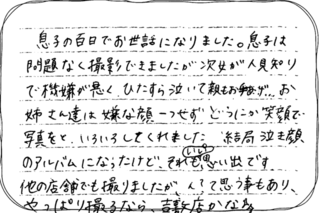 息子の百日でお世話になりました。息子は
問題なく撮影できましたが次女が人見知り
で機嫌が悪く、ひたすら泣いて親もお手上げ。お
姉さん達は嫌な顔一つせず どうにか笑顔で
写真をと、いろいろしてくれました 結局泣き顔
のアルバムになるけど、それもいい思い出です
他の店舗でも撮りましたが、ん？て思う事もあり、
やっぱり撮るなら、吉敷店かなぁ